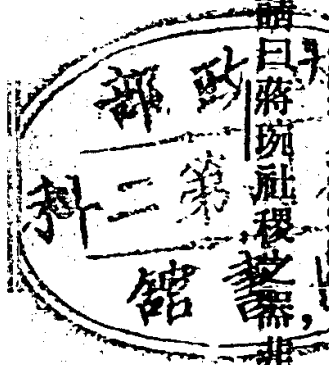 請曰蔣琬社稷之器,非
政部
第二科
書館